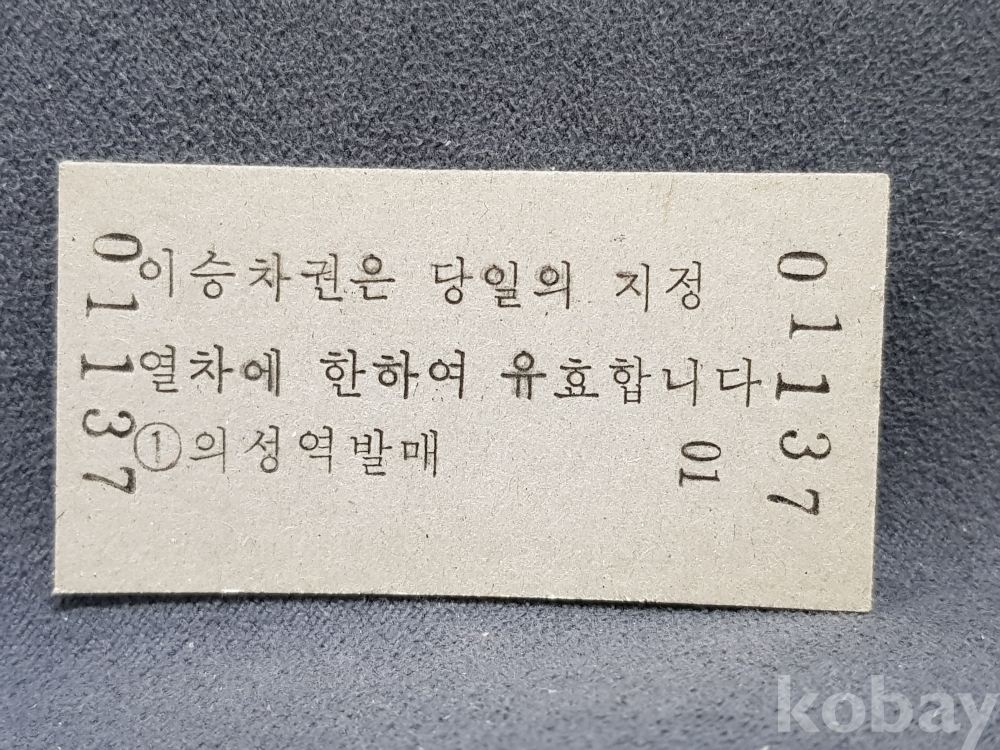 01137
이승차권은 당일의 지정
열차에 한하여 유효합니다
①의성역발매
01
01137
kobay